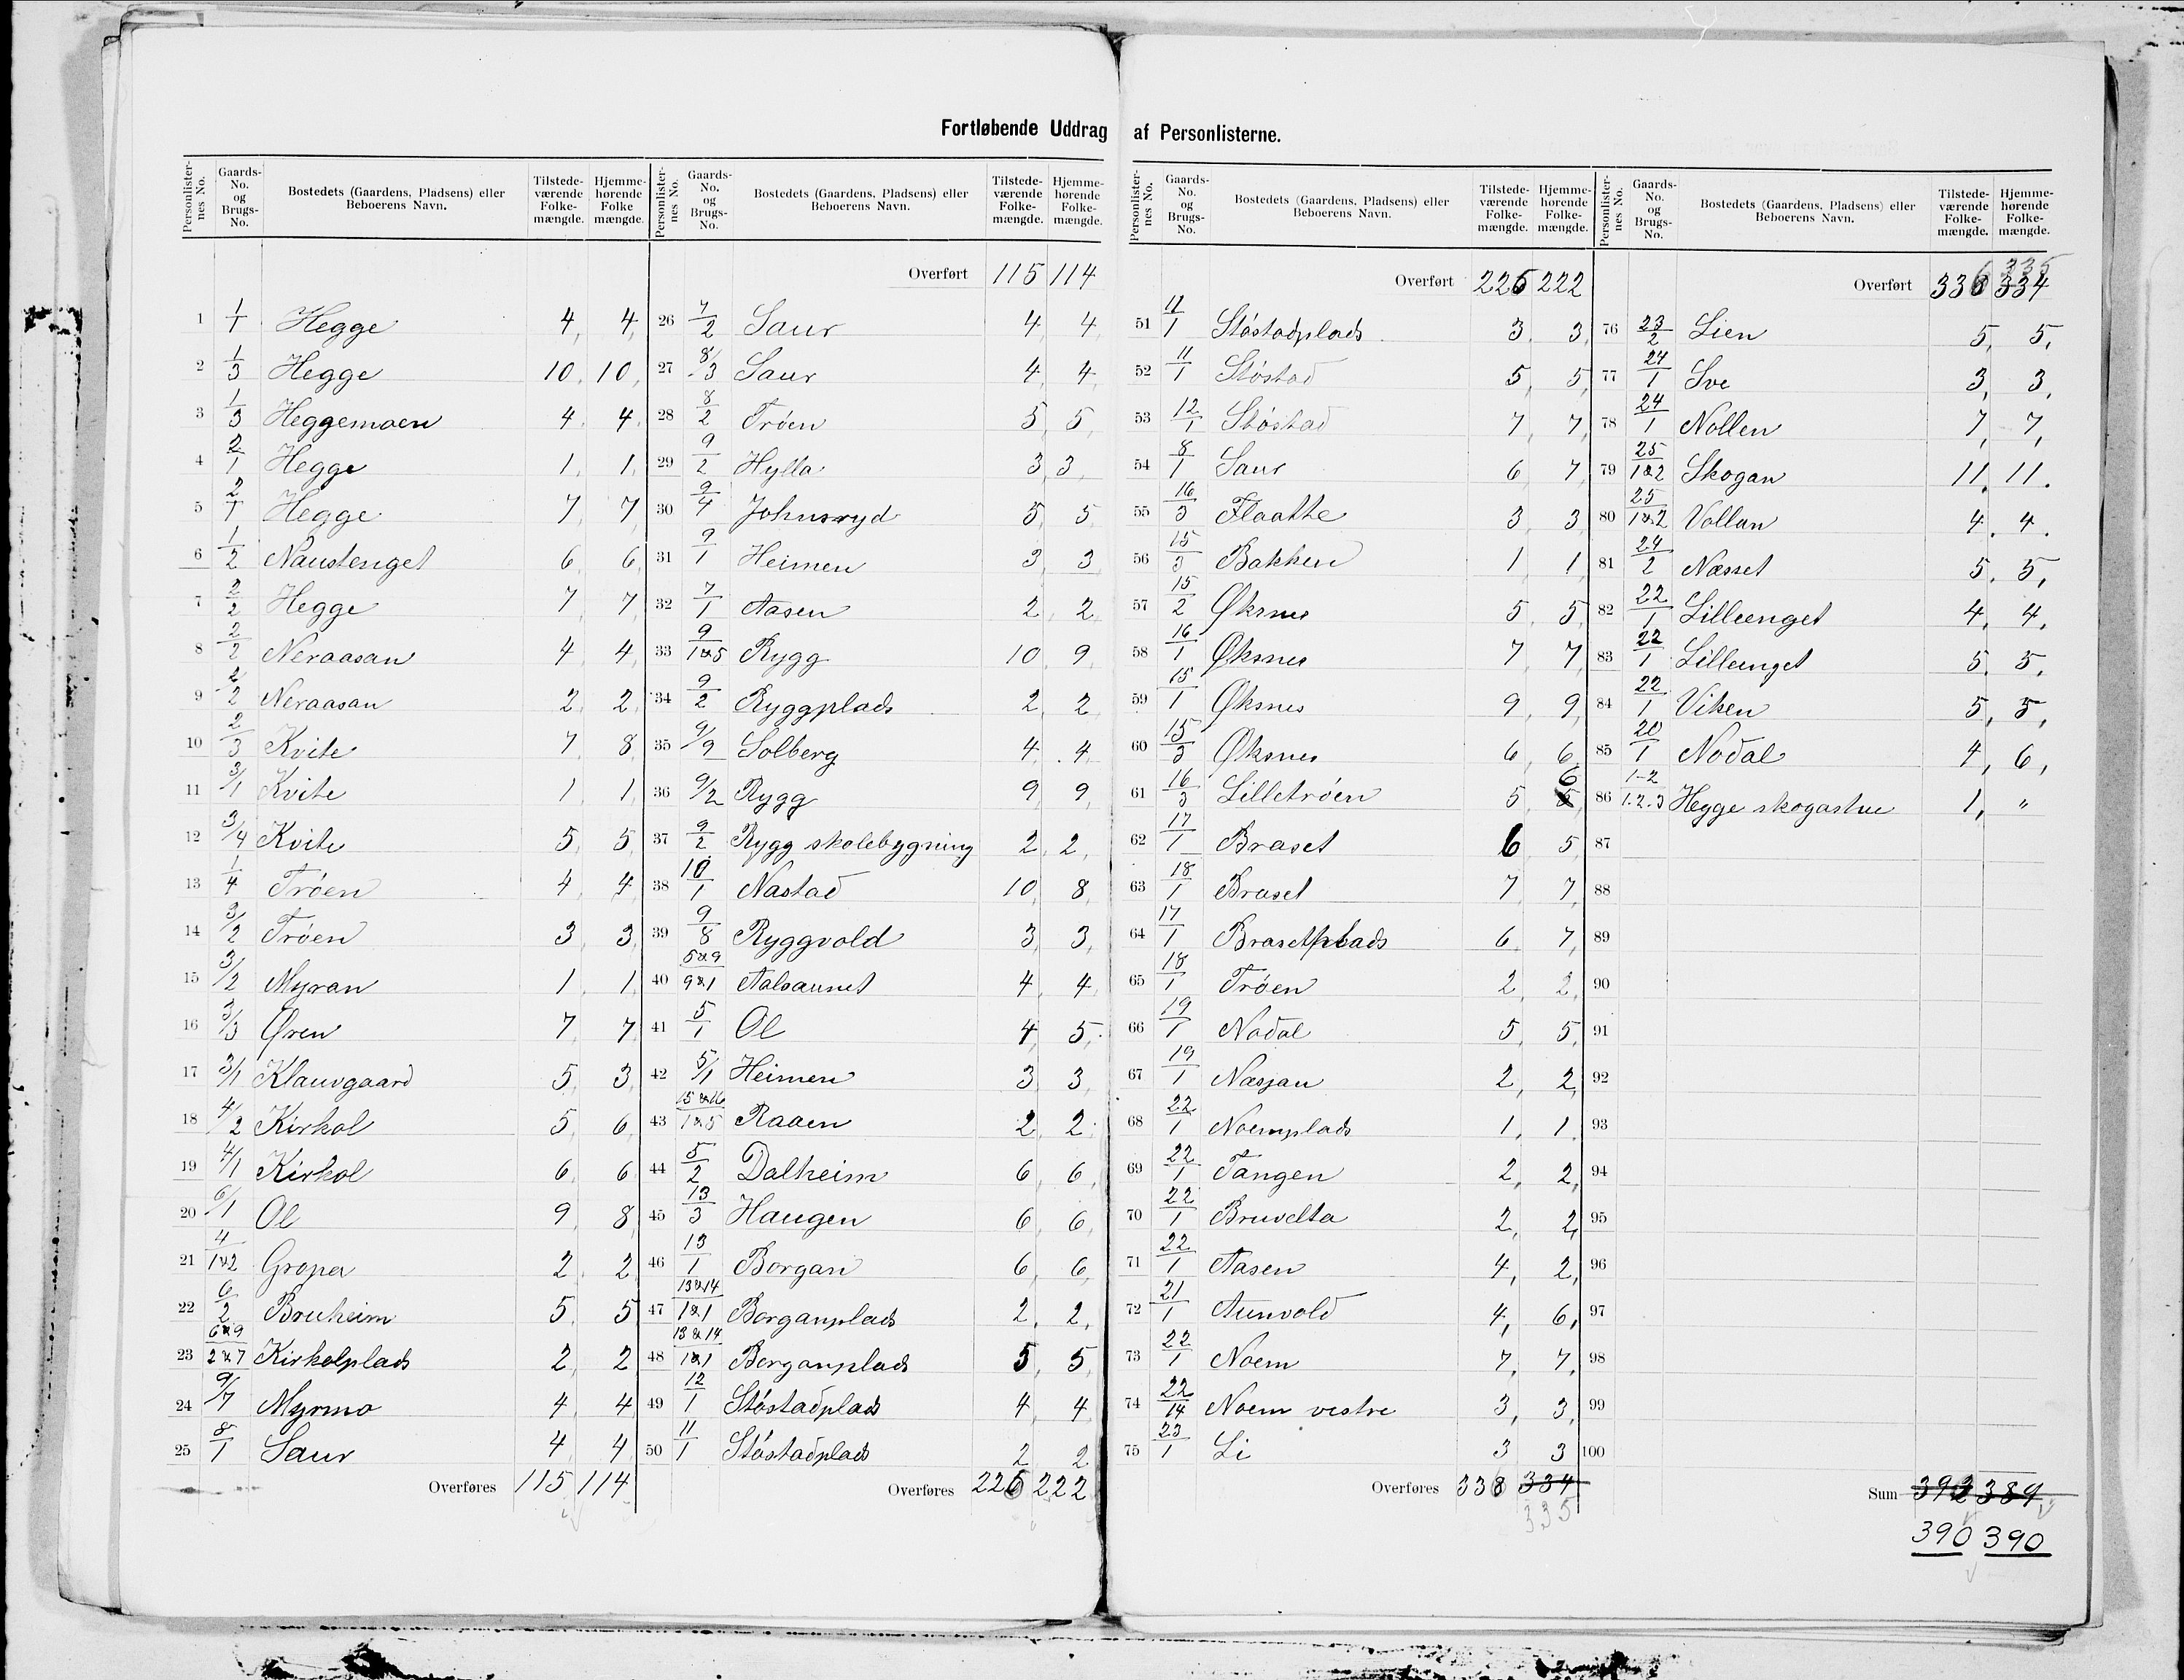 Fortløbende Uddrag af Personlisterne.
Personlisternes No. Gaards-No. og Brugs-No. Bostedets (Gaardens, Pladsens) eller Beboerens Navn. Tilstedeværende Folkemængde. Hjemmehørende Folke mængde.
1 1/1 Hegge 4, 4,
2 1/3 Hegge 10, 10,
3 1/3 Heggemoen 4, 4,
4 2/1 Hegge 1, 1,
5 2/1 Hegge 7, 7,
6 1/2 Naustenget 6, 6,
7 2/2 Hegge 7, 7,
8 2/2 Neraasan 4, 4,
9 2/2 Neraasan 2, 2,
10 2/3 Kvite 7, 8,
11 3/1 Kvite 1, 1,
12 3/4 Kvite 5, 5,
13 1/4 Trøen 4, 4,
14 3/2 Trøen 3, 3,
15 3/2 Myran 1, 1,
16 3/3 Øren 7, 7,
17 3/1 Klauvgaard 5, 3,
18 4/2 Kirkol 5, 6,
19 4/1 Kirkol 6, 6,
20 6/1 Ol 9, 8,
21 4/1&2 Gropa 2, 2,
22 6/2 Bruheim 5, 5
23 6&9/2&7 Kirkolplads 2, 2
24 9/7 Myrmo 4, 4
25 8/1 Saur 4, 4,
Overføres 115 114
Personlisternes No. Gaards-No. og Brugs-No. Bostedets (Gaardens, Pladsens) eller Beboerens Navn. Tilstedeværende Folkemængde. Hjemmehørende Folkemængde.
Overført 115 114
26 7/2 Saur 4, 4,
27 8/3 Saur 4, 4,
28 8/2 Trøen 5, 5,
29 9/2 Hylla 3, 3,
30 9/4 Johnsryd 5, 5,
31 9/1 Heimen 3, 3
32 7/1 Aasen 2, 2,
33 9/1&5 Rygg 10, 9,
34 9/2 Ryggplads 2, 2,
35 9/9 Solberg 4, 4,
36 9/2 Rygg 9, 9,
37 9/2 Rygg skolebygning 2, 2,
38 10/1 Nastad 10, 8,
39 9/8 Ryggvold 3, 3,
40 5&9/9&1 Aalsaunet 4, 4,
41 5/1 Ol 4, 5,
42 5/1 Heimen 3, 3,
43 15&16/1&5 Raaen 2, 2,
44 5/2 Dalheim 6, 6,
45 13/3 Haugen 6, 6,
46 13/1 Borgan 6, 6,
47 13&14/1&1 Borganplads 2, 2,
48 13&14/1&1 Borganplads 5, 5,
49 12/1 Støstadplads 4, 4,
50 11/1 Støstadplads 2 2
Overføres 226 222
Personlisternes No. Gaards-No. og Brugs-No. Bostedets (Gaardens, Pladsens) eller Beboerens Navn. Tilstedeværende Folkemængde. Hjemmehørende Folkemængde.
Overført 226 222
51 11/1 Støstadplads 3, 3,
52 11/1 Støstad 5, 5,
53 12/1 Støstad 7, 7,
54 8/1 Saur 6, 7,
55 16/3 Flaatte 3, 3,
56 15/3 Bakken 1, 1,
57 15/2 Øksnes 5, 5,
58 16/1 Øksnes 7, 7,
59 15/1 Øksnes 9, 9,
60 15/3 Øksnes 6, 6,
61 16/3 Lilletrøen 5, 6
62 17/1 Braset 6 5,
63 18/1 Braset 7, 7,
64 17/1 Brasetplads 6, 7,
65 18/1 Trøen 2, 2,
66 19/1 Nodal 5, 5,
67 19/1 Næsjan 2, 2,
68 22/1 Noemplads 1, 1,
69 22/1 Tangen 2, 2,
70 22/1 Bruvelta 2, 2,
71 22/1 Aasen 4, 2,
72 21/1 Aunvold 4, 6,
73 22/1 Noem 7, 7,
74 22/14 Noem vestre 3, 3,
75 23/1 Li 3 3
Overføres 338 334
335
Personlisternes No. Gaards-No. og Brugs-No. Bostedets (Gaardens, Pladsens) eller Beboerens Navn. Tilstedeværende Folkemængde. Hjemmehørende Folkemængde.
335
Overført 336 334
76 23/2 Lien 5, 5,
77 24/1 Sve 3, 3,
78 24/1 Nollen 7, 7,
79 25/1&2 Skogan 11, 11.
80 25/1&2 Vollan 4, 4.
81 24/2 Næsset 5, 5,
82 22/1 Lilleenget 4, 4,
83 22/1 Lilleenget 5, 5,
84 22/1 Viken 5, 5,
85 20/1 Nodal 4, 6,
86 1-2/1.2.3 Hegge skogastue 1, "
87
88
89
90
91
92
93
94
95
96
97
98
99
100
Sum 392 389
390 390